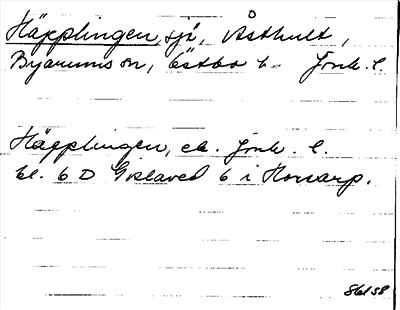 Häpplingen, sjö, Åsthult,
Bjarums sn, Östbo h. Jönk. l.
Häpplingen, ek. Jönk. l.
bl. 6 D Gislaved 6 i Horsarp.
86158